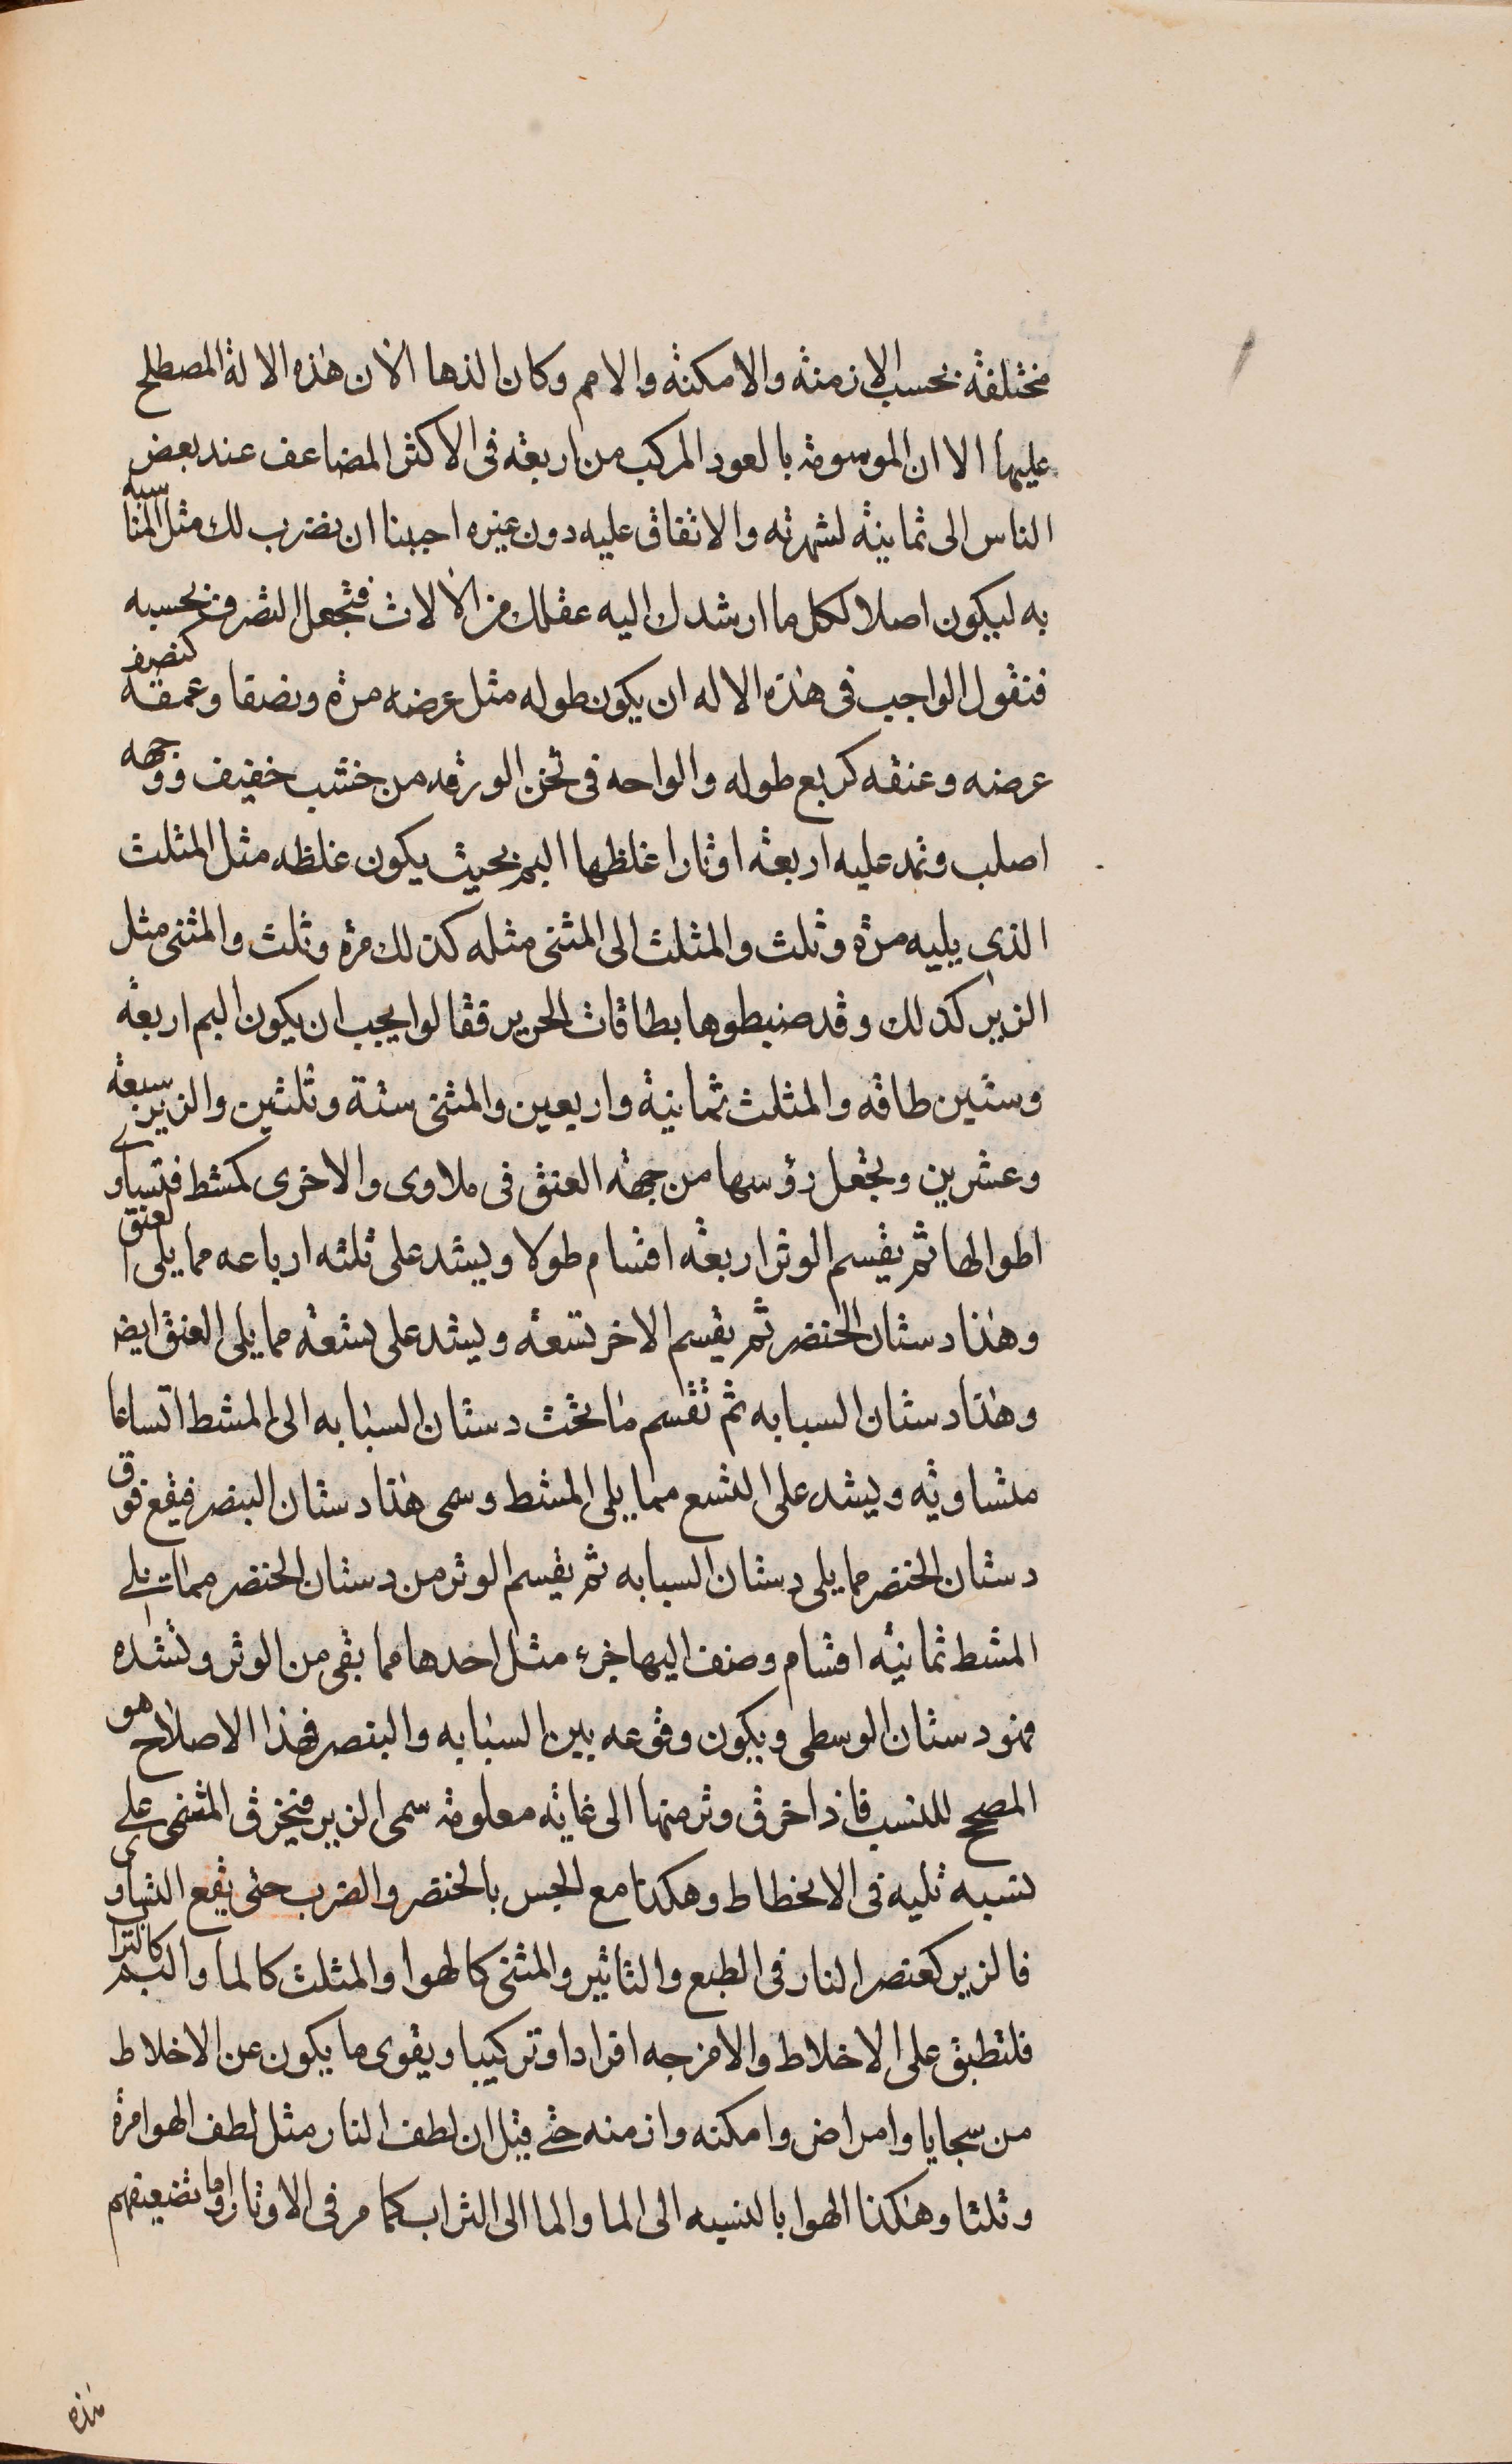 مختلفة بحسب الازمنة والامكنة والامم وكان الذها الآن هذه الالة المصطلح
عليها الا ان الموسومة بالعود المركب من اربعة فى الاكثر المضاعف عند بعض
الناس الى ثمانية لشهرته والاتفاق عليه دون غيره احببنا ان نضرب لك مثل المناسبه
به ليكون اصلا لكل ما ارشدك اليه عقلك من الآلات فتجعل التصرف بحسبه
فنقول الواجب فى هذه الاله ان يكون طوله مثل عرضه مرة ونصفا وعمقه كنصف
عرضه وعنقه كربع طوله والواحه فى ثخن الورقه من خشب خفيف ووجهه
اصلب وتمد عليه اربعة اوتارا غلظها البم بحيث يكون غلظه مثل المثلث
الذى يليه مرة وثلث والمثلث الى المثنى مثله كذلك مرة وثلث والمثنى مثل
الزير كذلك وقد ضبطوها بطاقات الحرير فقالوا يجب ان يكون البم اربعة
وستين طاقه والمثلث ثمانية واربعين والمثنى ستة وثلثين والزير سبعة
وعشرين وتجعل رؤسها من جهة العنق فى ملاوى والاخرى كمشط فتساوى
اطوالها ثم يقسم الوتر اربعة اقسام طولا ويشد على ثلثه ارباعه مما يلى العنق
وهذا دستان الخنصر ثم يقسم الاخر تسعة ويشد على تسعة مما يلى العنق ايضر
وهذا دستان السبابه ثم تقسم ما تحت دستان السبابه الى المشط اتساعا
متساوية ويشد على التسع مما يلى المشط وسمى هذا دستان البنصر فيقع فوق
دستان الخنصر مما يلى دستان السبابه ثم يقسم الوتر من دستان الخنصر مما يلى
المشط ثمانية اقسام وضف اليها جزء مثل احدها مما بقى من الوتر وتشده
فهو دستان الوسطى ويكون وقوعه بين السبابه والبنصر فهذا الاصلاح هو
المصحح للنسب فاذا حزق وتر منها الى غاية معلومة سمى الزير فيحزق المثنى على
نسبه تليه فى الانحطاط وهكذا مع الجس بالخنصر والضرب حتى يقع التساوى
فالزير كعنصر النار فى الطبع والتاثير والمثنى كالهوا والمثلث كالما والبم كالتراب
فلتطبق على الاخلاط والامزجه افرادا وتركيبا ويقوى ما يكون عن الاخلاط
من سجايا وامراض وامكنه وازمنه حتى قيل ان لطف النار مثل لطف الهوا مرة
وثلثا وهكذا الهوا بالنسبه الى الما والما الى التراب كما مر فى الاوتار واما تضعيفهم
هذه